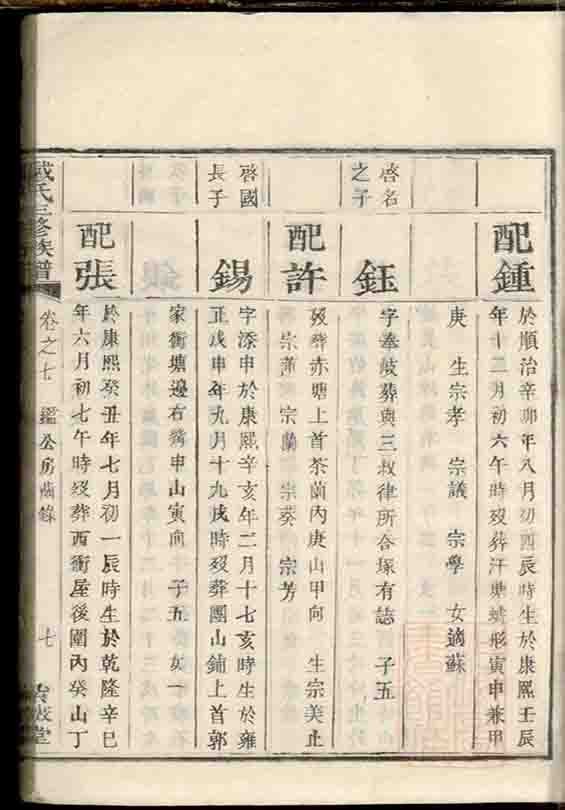 配鍾
於順治辛卯年八月初四辰時生於康熙壬辰
年十二月初六午時歿葬汗塘蜻形寅申兼甲
庚　生宗孝　宗議　宗學　女適蘇
啓名
之子
鈺
字
葬與三叔律所合塚有誌　子五
配許
歿葬赤塘上首茶蘭內庚山甲向　生宗美止
宗蕭　宗蘭　宗葵　宗芳
啓國
長子
錫
字添申於康熙辛亥年二月十七亥時生於雍
正戊申年九月十九戌時歿葬團山鋪上首郭
家衝塘邊右
申山寅向　子五　女一
配張
於康熙癸丑年七月初一辰時生於乾隆辛巳
年六月初七午時歿葬西衝屋後圍丙癸山丁
氏三修族譜
卷之七　鑑公房齒錄　七
堂